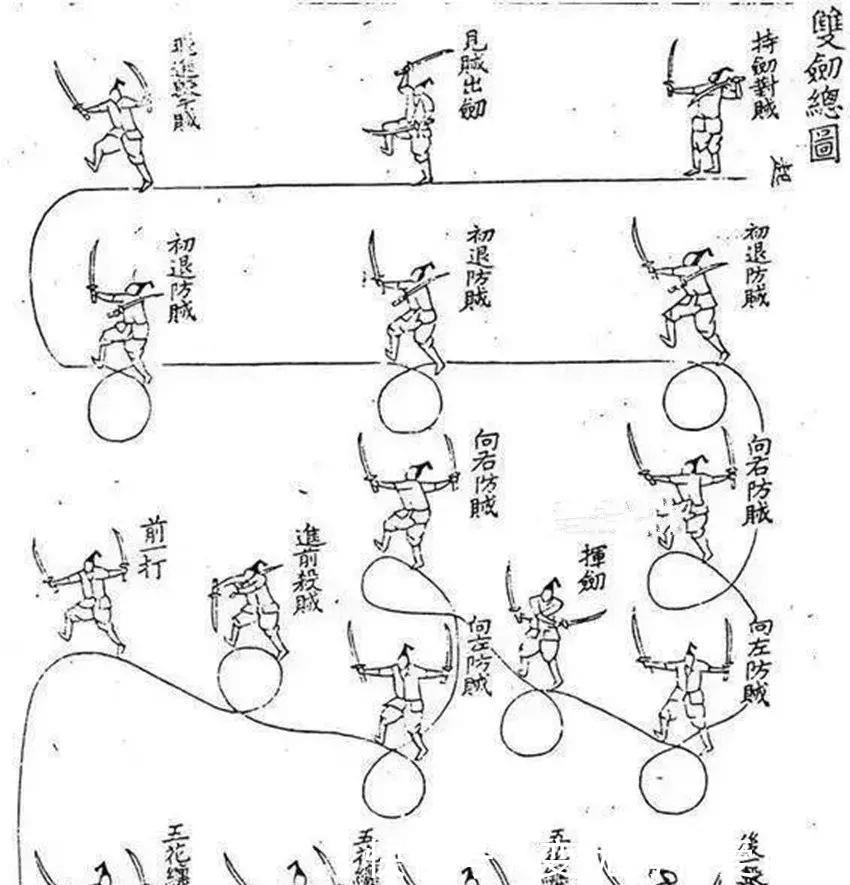 雙劍總圖
持劍對賊
見賊出劍
初退防賊
初退防賊
初退防賊
向右防賊
向右防賊
揮劍
進前殺賊
前一打
向左防賊
向左防賊
後一
五花
五花纏
五花纏